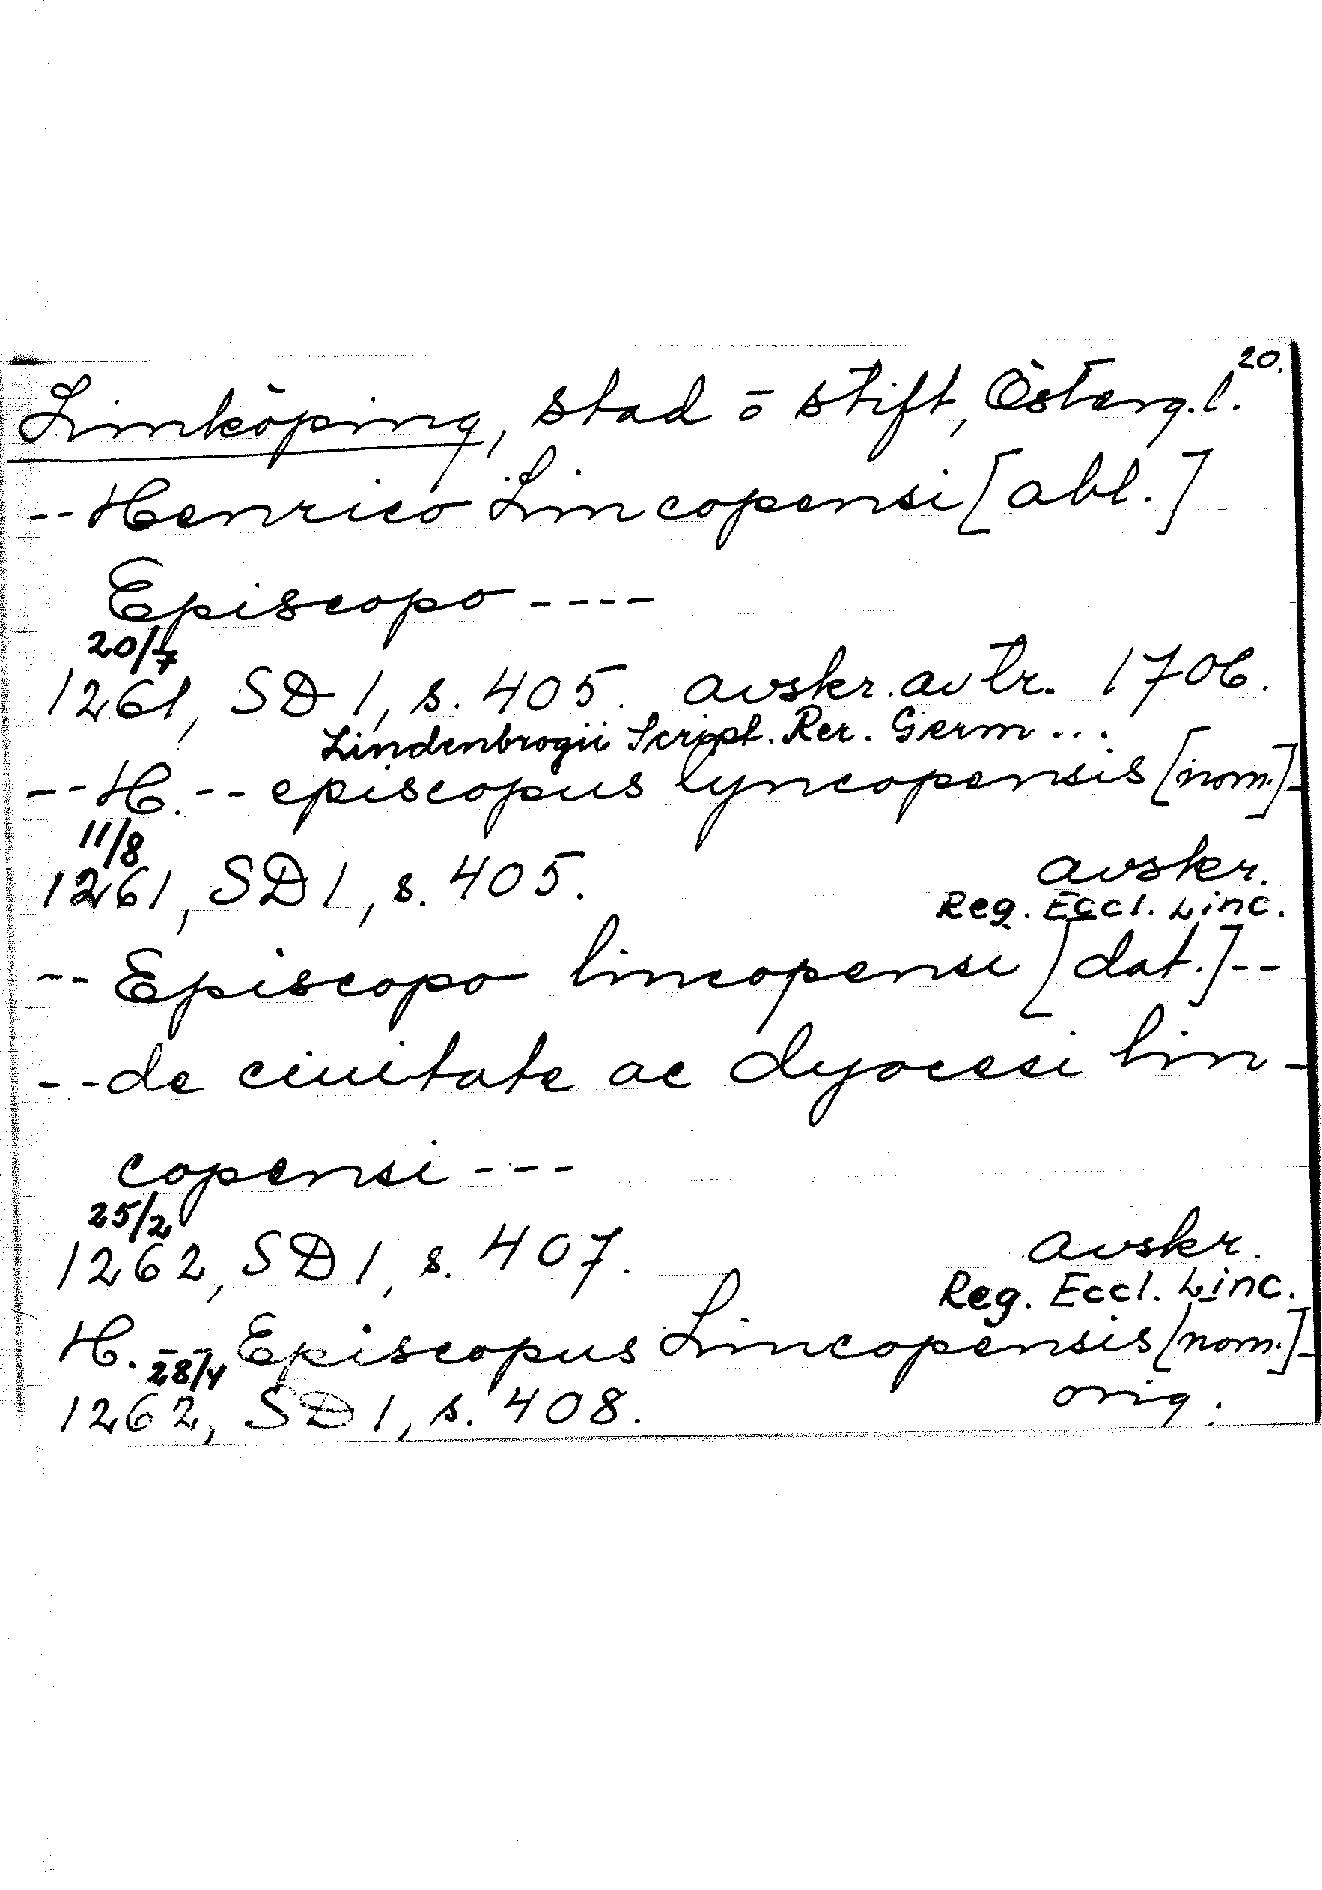 20.
Linköping, stad ō stift, Österg.l.
-- Henrico Lincopensi [abl.]
Episcopo ----
20/7
1261, SD 1, s. 405. avskr. av tr. 1706.
Lindenbrogii Script. Rer. Germ...
-- H. -- episcopus lyncopensis [nom.] -
11/8
1261, SD 1, s. 405. avskr.
Reg. Eccl. Linc.
-- Episcopo lincopensi [dat.] --
-- de ciuitate ac dyocesi lin-
copensi ---
25/2
1262, SD 1, s. 407. avskr.
Reg. Eccl. Linc.
H. -- Episcopus Lincopensis [nom.] -
28/4
1262, SD 1, s. 408. orig.